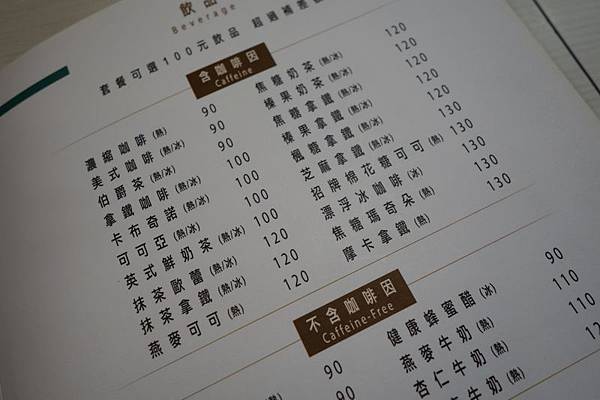 飲品
Beverage
套餐可選100元飲品 超過補差
含咖啡因
Caffeine
濃縮咖啡(熱) 90
美式咖啡(熱/冰) 90
伯爵茶(熱/冰) 90
拿鐵咖啡(熱/冰) 100
卡布奇諾(熱) 100
可可亞(熱/冰) 100
英式鮮奶茶(熱/冰) 100
抹茶歐蕾(熱/冰) 120
抹茶拿鐵(熱/冰) 120
燕麥可可(熱) 120
焦糖奶茶(熱/冰) 120
榛果奶茶(熱/冰) 120
焦糖拿鐵(熱/冰) 120
榛果拿鐵(熱/冰) 120
楓糖拿鐵(熱/冰) 120
芝麻拿鐵(熱/冰) 130
招牌棉花糖可可(熱) 130
漂浮冰咖啡(冰) 130
焦糖瑪奇朵(熱) 130
摩卡拿鐵(熱) 130
不含咖啡因
Caffeine-Free
90
90
健康蜂蜜醋(冰) 90
燕麥牛奶(熱) 110
杏仁牛奶(熱) 110
牛奶(熱)